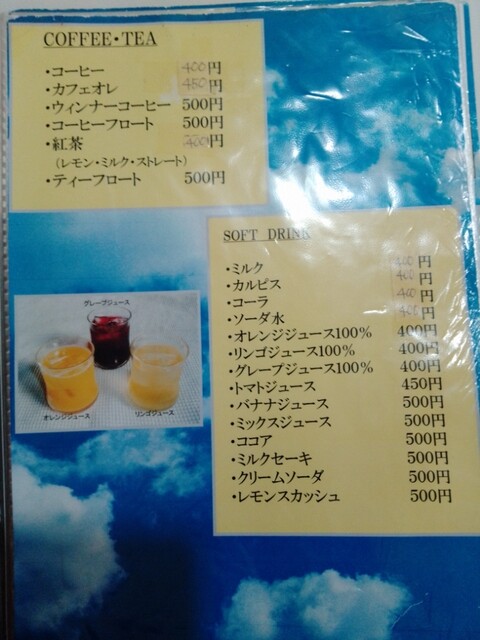 COFFEE・TEA
・コーヒー 400円
・カフェオレ 450円
・ウィンナーコーヒー 500円
・コーヒーフロート 500円
・紅茶 400円
(レモン・ミルク・ストレート)
・ティーフロート 500円
SOFT DRINK
・ミルク 400円
・カルピス 400円
・コーラ 400円
・ソーダ水 400円
・オレンジジュース100% 400円
・リンゴジュース100% 400円
・グレープジュース100% 400円
・トマトジュース 450円
・バナナジュース 500円
・ミックスジュース 500円
・ココア 500円
・ミルクセーキ 500円
・クリームソーダ 500円
・レモンスカッシュ 500円
グレープジュース
オレンジジュース
リンゴジュース